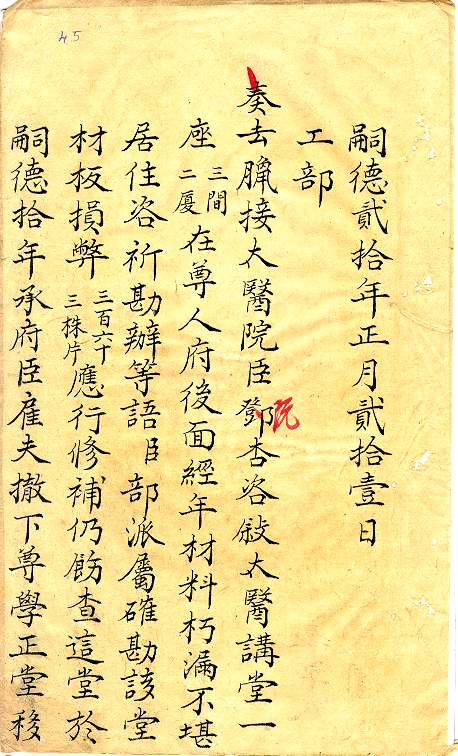 45
嗣德貳拾年正月貳拾壹日
工部
奏去臘接太醫院臣鄧杏咨敍太醫講堂一
座三間二廈在尊人府後面經年材料朽漏不堪
居住咨祈勘辦等語臣部派屬確勘該堂
材板損弊三百六十三株片應行修補仍飭查這堂於
嗣德拾年承府臣雇夫撤下尊學正堂移